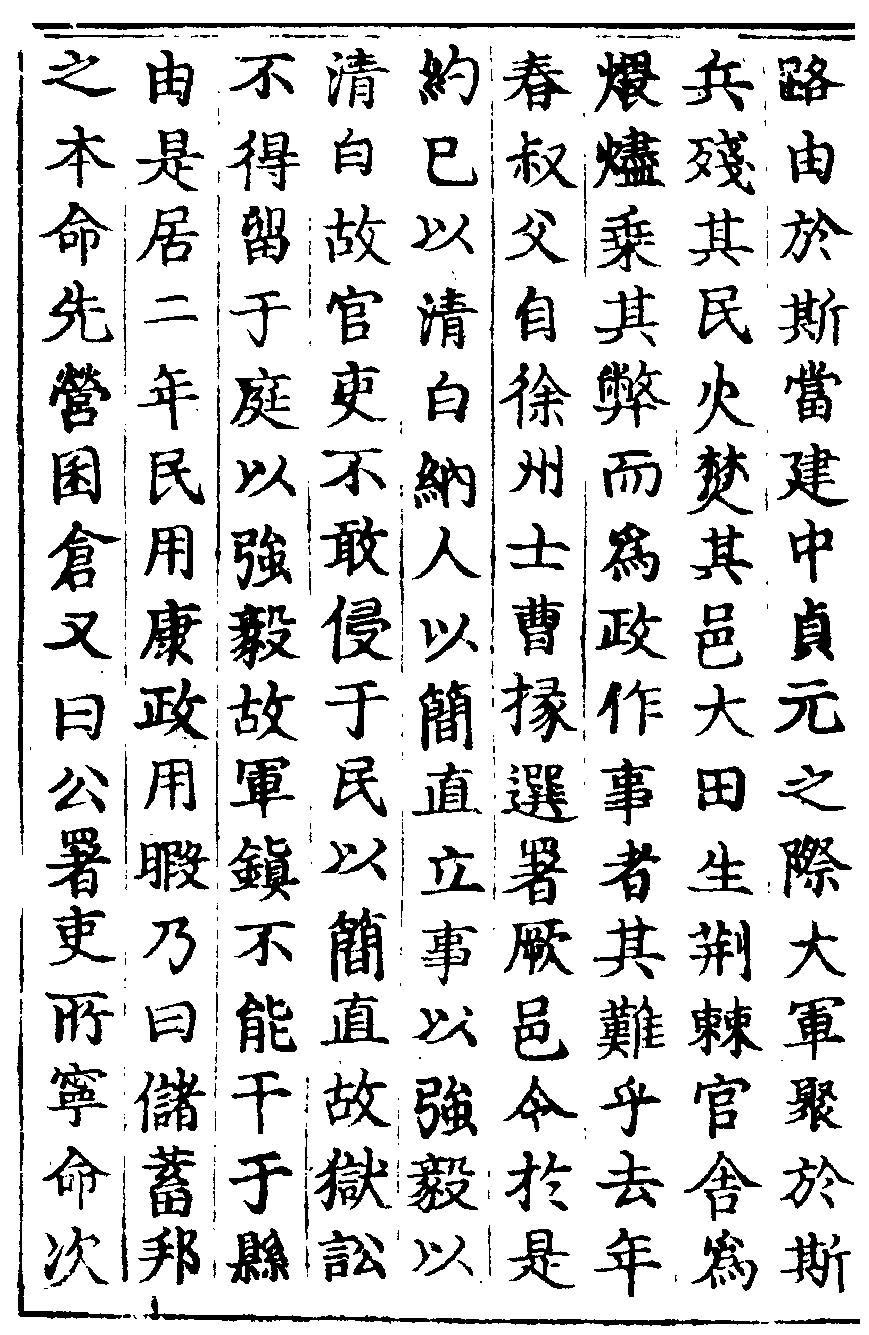 路由於斯當建中貞元之際大軍聚於斯
兵殘其民火焚其邑大田生荆棘官舍為
煨燼乘其弊而為政作事者其難乎去年
春叔父自徐州士曹掾選署厥邑令於是
約已以清白納人以簡直立事以強毅以
清白故官吏不敢侵于民以簡直故獄訟
不得留于庭以強毅故軍鎮不能干于縣
由是居二年民用康政用暇乃曰儲蓄邦
之本命先營囷倉又曰公署吏所寧命次